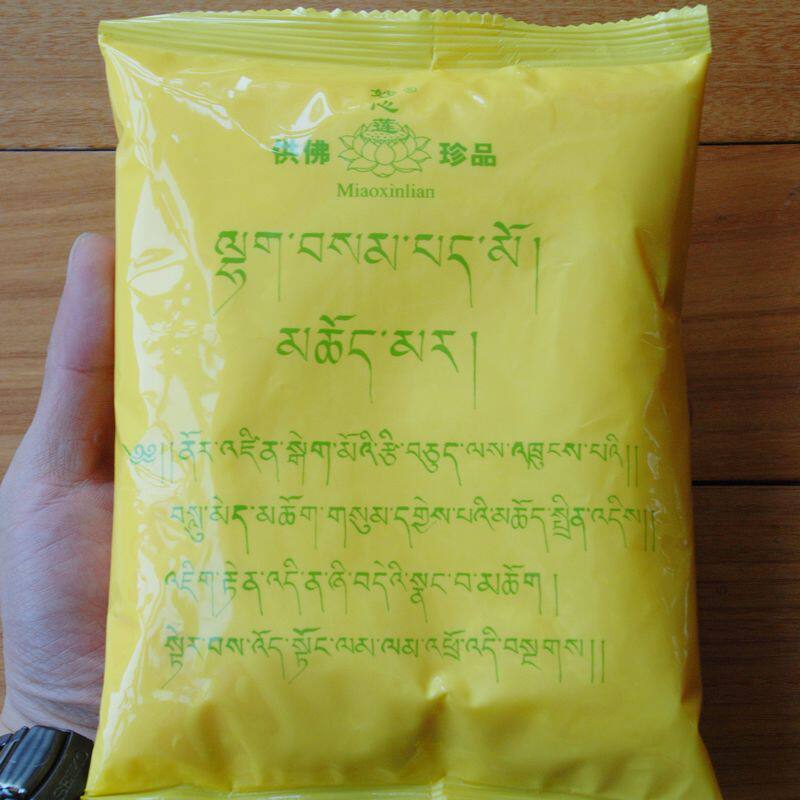 妙心
莲
供佛 珍品
Miaoxinlian
ལྷག་བསམ་པད་མོ།
མཆོད་མར།
༄༅།།ནོར་འཛིན་སྒེག་མོའི་རྩི་བཅུད་ལས་འཁྲུངས་པའི།།
བསླུ་མེད་མཆོག་གསུམ་དགྱེས་པའི་མཆོད་སྤྲིན་འདིས།།
འཇིག་རྟེན་འདི་ན་ཞི་བདེའི་སྣང་བ་མཆོག །
སྟེར་བས་འོད་སྟོང་ལམ་ལམ་འཕྲོ་འདི་བསྔགས།།